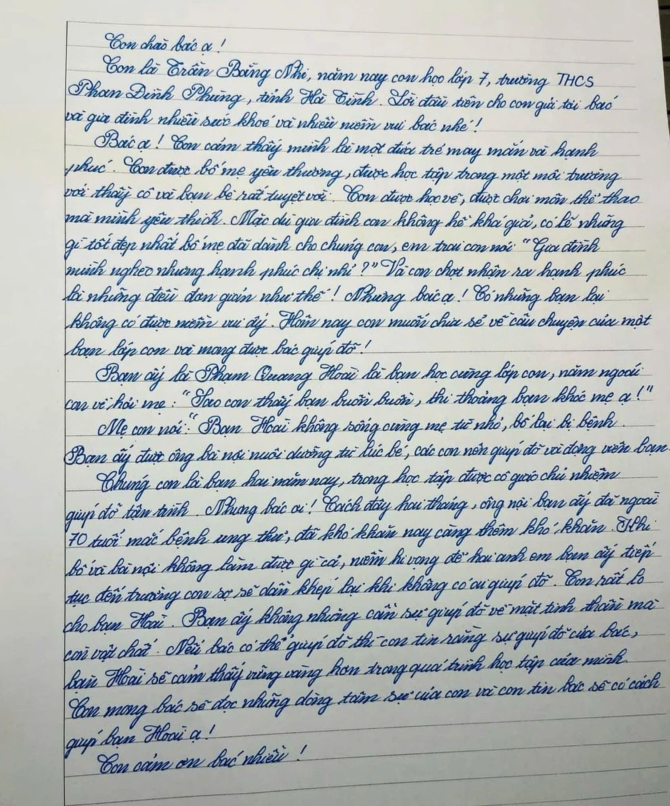 Con chào bác ạ!
Con là Trần Băng Nhi, năm nay con học lớp 7, trường THCS
Phan Đình Phùng, tỉnh Hà Tĩnh. Lời đầu tiên cho con gửi tới bác
và gia đình nhiều sức khoẻ và nhiều niềm vui bác nhé!
Bác ạ! Con cảm thấy mình là một đứa trẻ may mắn và hạnh
phúc. Con được bố mẹ yêu thương, được học tập trong một môi trường
với thầy cô và bạn bè rất tuyệt vời. Con được học vẽ, được chơi môn thể thao
mà mình yêu thích. Mặc dù gia đình con không hề khá giả, có lẽ những
gì tốt đẹp nhất bố mẹ đã dành cho chúng con, em trai con nói "Gia đình
mình nghèo nhưng hạnh phúc chị nhỉ?" Và con chợt nhận ra hạnh phúc
là những điều đơn giản như thế! Nhưng bác ạ! Có những bạn lại
không có được niềm vui ấy. Hôm nay con muốn chia sẻ về câu chuyện của một
bạn lớp con và mong được bác giúp đỡ!
Bạn ấy là Phạm Quang Hoài là bạn học cùng lớp con, năm ngoái
con về hỏi mẹ: "Sao con thấy bạn buồn buồn, thi thoảng bạn khóc mẹ ạ!"
Mẹ con nói: "Bạn Hoài không sống cùng mẹ từ nhỏ, bố lại bị bệnh.
Bạn ấy được ông bà nội nuôi dưỡng từ lúc bé, các con nên giúp đỡ và động viên bạn
Chúng con là bạn hai năm nay, trong học tập được cô giáo chủ nhiệm
giúp đỡ tận tình. Nhưng bác ơi! Cách đây hai tháng, ông nội bạn ấy đã ngoài
70 tuổi mắc bệnh ung thư, đã khó khăn nay càng thêm khó khăn. Khi
bố và bà nội không làm được gì cả, niềm hi vọng để hai anh em bạn ấy tiếp
tục đến trường con sợ sẽ dần khép lại khi không có ai giúp đỡ. Con rất lo
cho bạn Hoài. Bạn ấy không những cần sự giúp đỡ về mặt tinh thần mà
còn vật chất. Nếu bác có thể giúp đỡ thì con tin rằng sự giúp đỡ của bác,
bạn Hoài sẽ cảm thấy vững vàng hơn trong quá trình học tập của mình.
Con mong bác sẽ đọc những dòng tâm sự của con và con tin bác sẽ có cách
giúp bạn Hoài ạ!
Con cảm ơn bác nhiều!